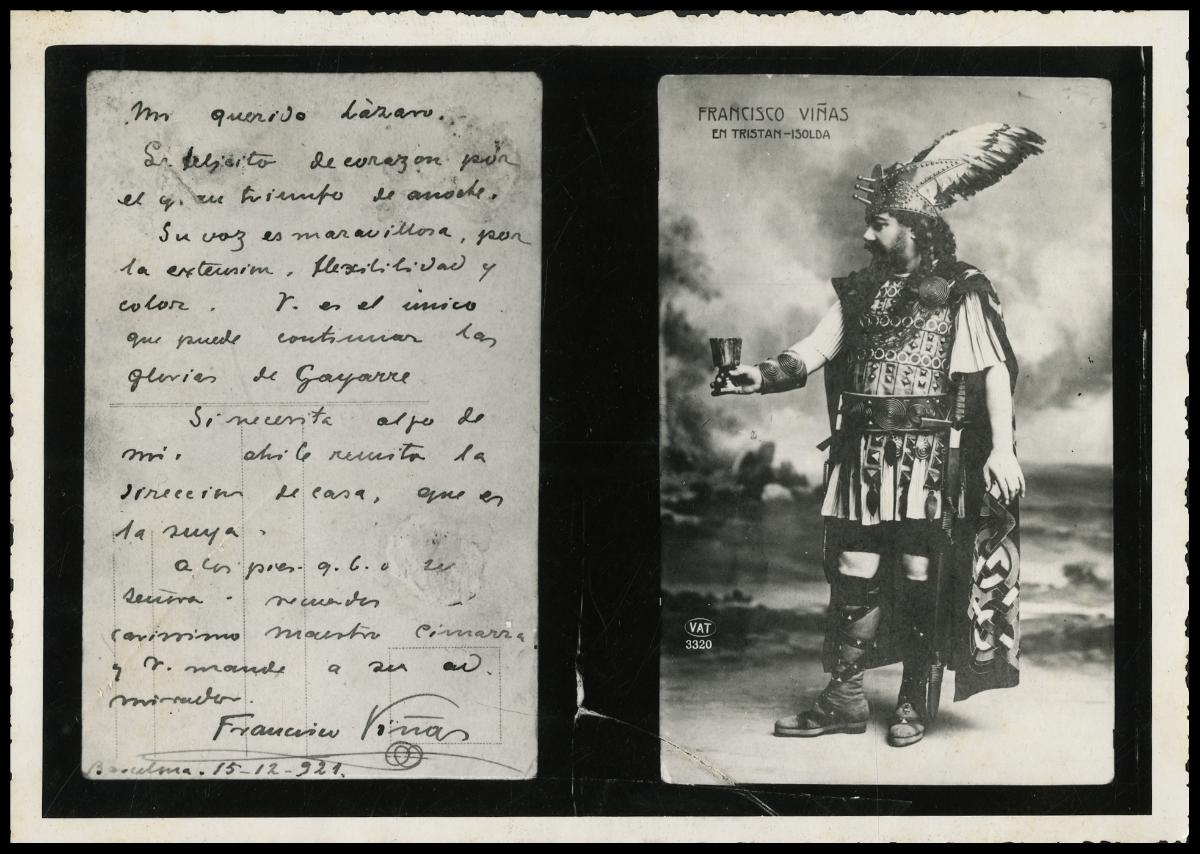 Mi querido Lázaro.
Le felicito de corazon por
el g. su triunfo de anoche.
Su voz es maravillosa, por
la extension, flexibilidad y
color. V. es el único
que puede continuar las
glorias de Gayarre
Si necesita algo de
mi. ahi le remito la
direccion de casa, que es
la suya.
a los pies. q. b. o su
señora. recuerdos
carissimo maestro Cimarra
y V. mande a su ad.
mirador.
Francisco Viñas
Barcelona. 15-12-921.
FRANCISCO VIÑAS
EN TRISTAN-ISOLDA
VAT
3320